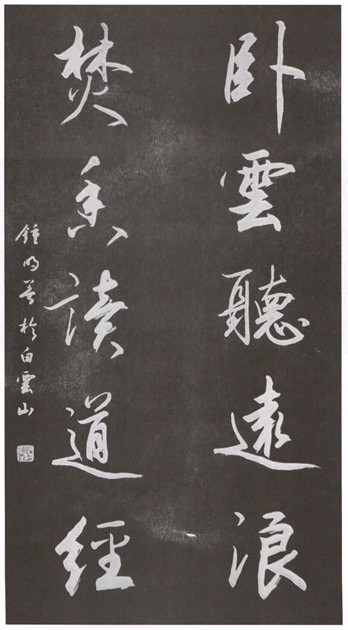 卧雲聽遠浪
焚香讀道經
鍾明善於白雲山